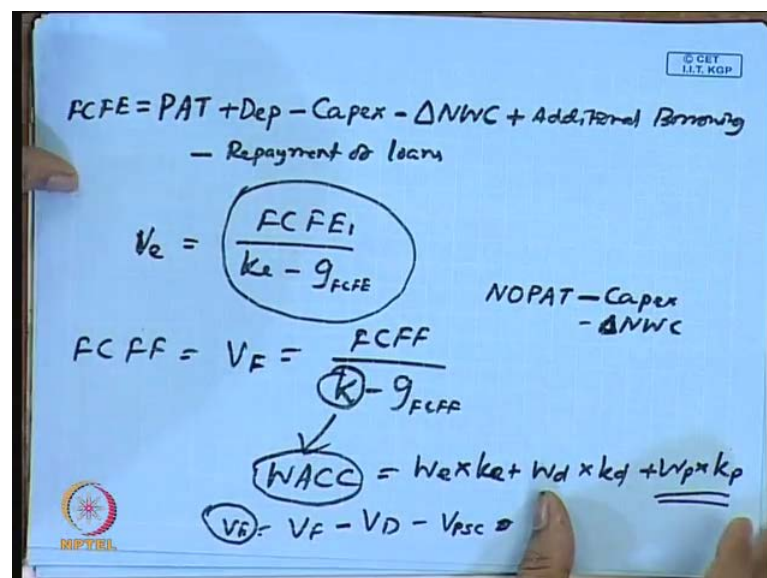 © CET
I.I.T. KGP
FCFE = PAT + Dep - Capex - ΔNWC + Additional Borrowing
- Repayment of loans
Ve = FCFE1 / ke - gFCFE
NOPAT - Capex
- ΔNWC
FCFF = VF = FCFF / k - gFCFF
WACC = We × ke + Wd × kd + Wp × kp
= VF - VD - VPSC
NPTEL